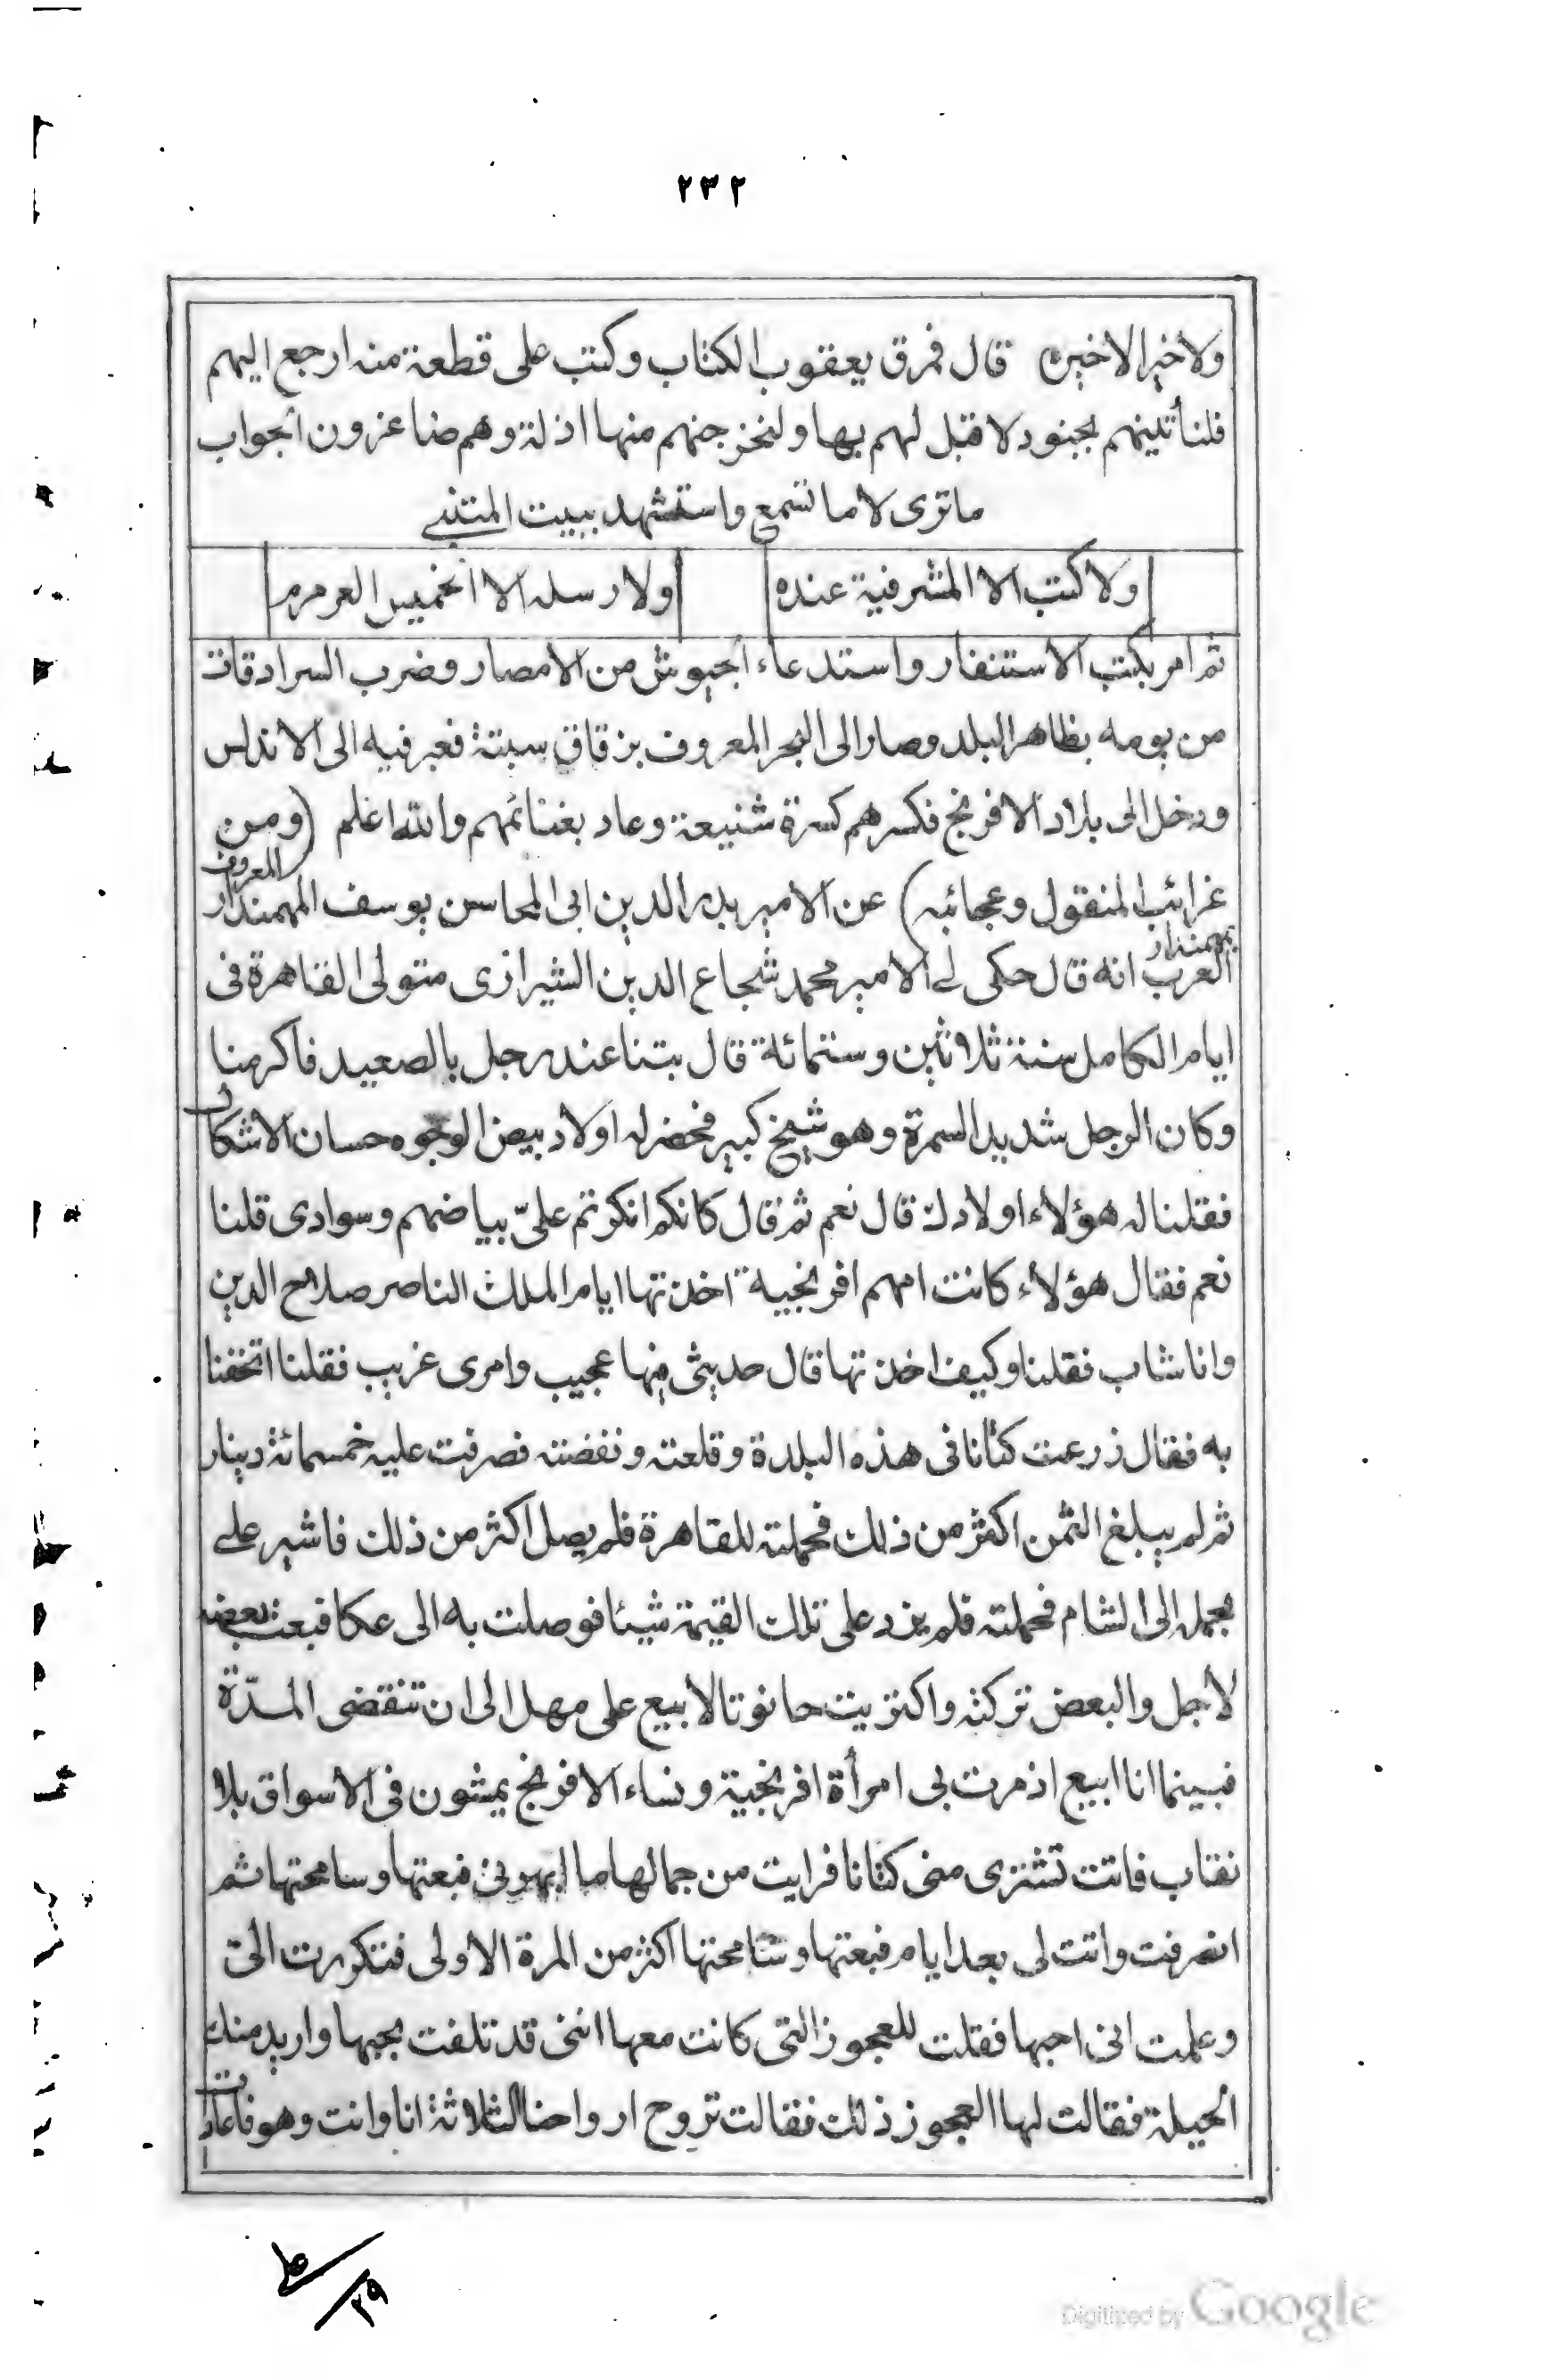 ٢٣٢
ولا خير الا خيره قال فمزق يعقوب الكتاب وكتب على قطعة منه ارجع اليهم
فلنأتينهم بجنود لا قبل لهم بها ولنخرجنهم منها اذلة وهم صاغرون الجواب
ما ترى لا ما تسمع واستشهد ببيت المتنبي
ولا كتب الا المشرفية عنده ولا رسله الا الخميس العرمرم
ثم امر بكتب الاستنفار واستدعاء الجيوش من الامصار وضرب السرادقات
من يومه بظاهر البلد وصار الى البحر المعروف بزقاق سبتة فعبر فيه الى الاندلس
ودخل الى بلاد الافرنج فكسرهم كسرة شنيعة وعاد بغنائمهم والله اعلم (ومن
غرائب المنقول وعجائبه) عن الامير بدر الدين ابى المحاسن يوسف المهمندار المعروف
بمهمندار العرب انه قال حكى لى الامير محمد شجاع الدين الشيرازى متولى القاهرة فى
ايام الكامل سنة ثلاثين وستمائة قال بتنا عند رجل بالصعيد فاكرمنا
وكان الرجل شديد السمرة وهو شيخ كبير فحضر له اولاد بيض الوجوه حسان الاشكال
فقلنا له هؤلاء اولادك قال نعم ثم قال كانكم انكرتم علىّ بياضهم وسوادى قلنا
نعم فقال هؤلاء كانت امهم افرنجية اخذتها ايام الملك الناصر صلاح الدين
وانا شاب فقلنا وكيف اخذتها قال حديثى فيها عجيب وامرى غريب فقلنا اتحفنا
به فقال زرعت كتانا فى هذه البلدة وقلعته ونفضته فصرفت عليه خمسمائة دينار
ثم لم يبلغ الثمن اكثر من ذلك فحملته للقاهرة فلم يصل اكثر من ذلك فاشير على
بحمله الى الشام فحملته فلم يزد على تلك القيمة شيئا فوصلت به الى عكا فبعت بعضه
لأجل والبعض تركته واكتريت حانوتا لابيع على مهل الى ان تنقضى المدّة
فبينما انا ابيع اذ مرت بى امرأة افرنجية ونساء الافرنج يمشون فى الاسواق بلا
نقاب فاتت تشترى منى كتانا فرايت من جمالها ما ابهرنى فبعتها وسامحتها ثم
انصرفت واتت لى بعد ايام فبعتها وسامحتها اكثر من المرة الاولى فتكررت الىّ
وعلمت انى احبها فقلت للعجوز التى كانت معها اننى قد تلفت بحبها واريد منك
الحيلة فقالت لها العجوز ذلك فقالت تروح ارواحنا الثلاثة انا وانت وهو فاعادت
٢٩
Digitized by Google